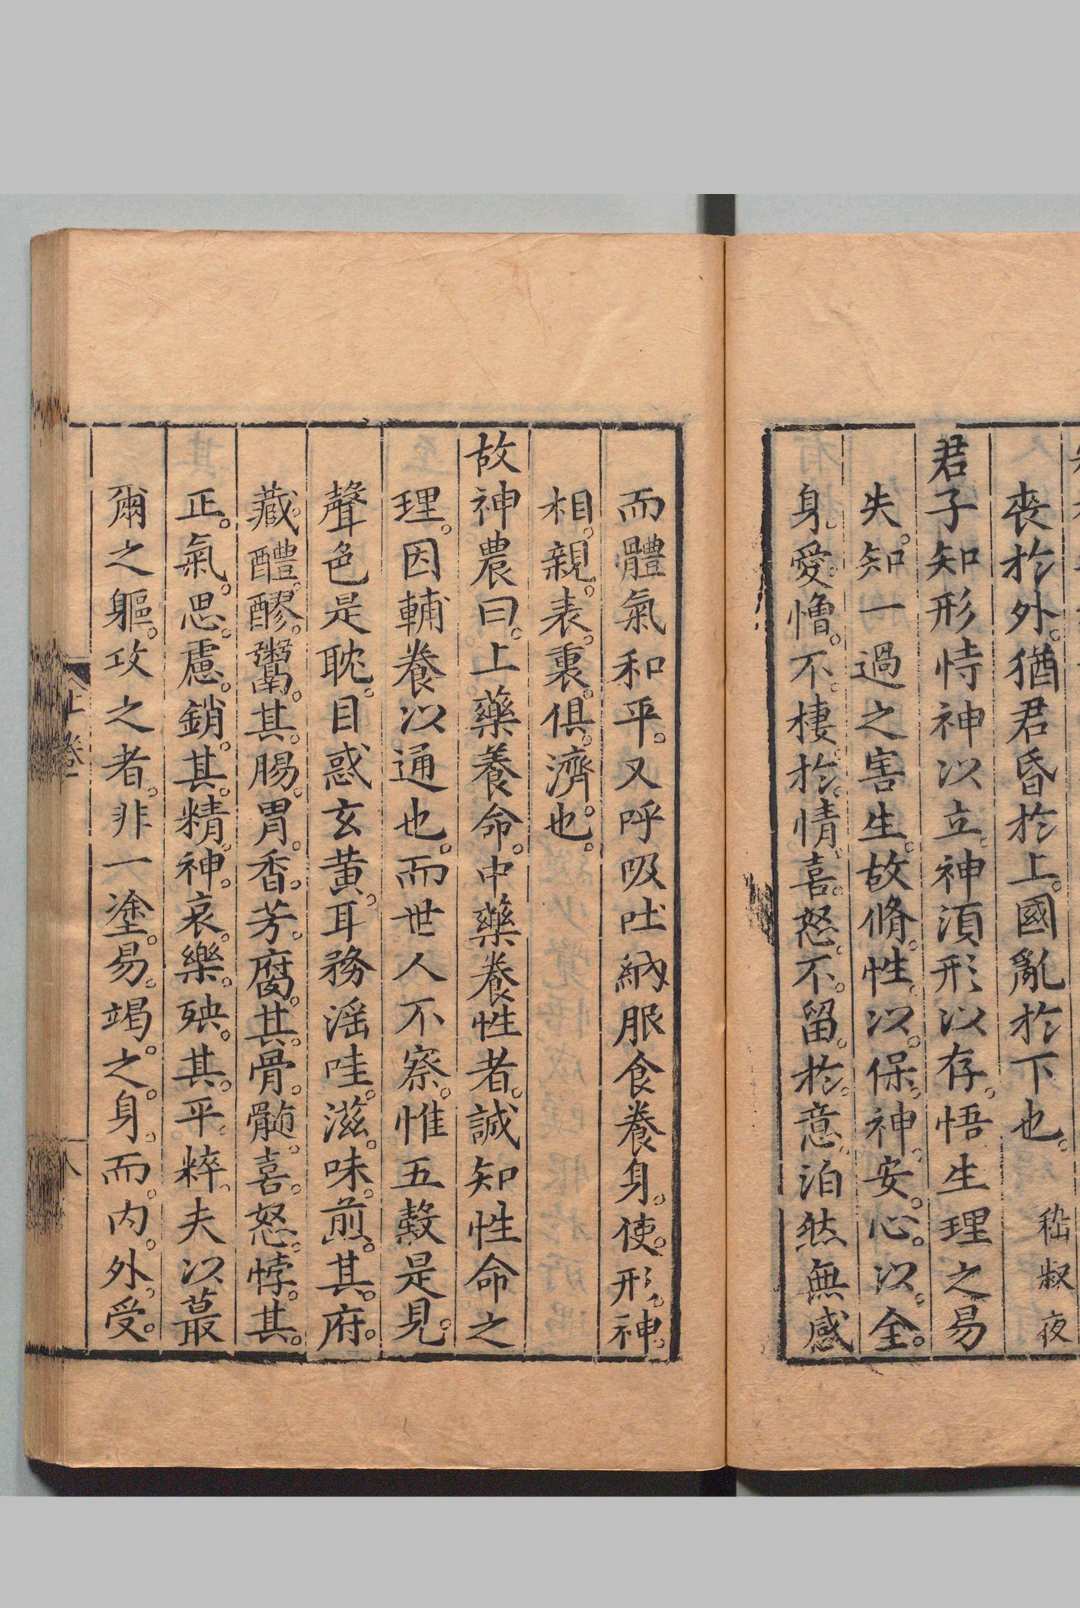 喪於外。猶君昏於上。國亂於下也。嵇叔夜
君子知形恃神以立。神須形以存。悟生理之易
失。知一過之害生。故脩性以保神。安心以全
身。愛憎不棲於情。喜怒不留於意。泊然無感
而體氣和平。又呼吸吐納服食養身。使形神
相親。表裏俱濟也。
故神農曰。上藥養命。中藥養性者。誠知性命之
理。因輔養以通也。而世人不察。惟五糓是見。
聲色是耽。目惑玄黃。耳務滛哇。滋味煎其府
藏。醴醪鬻其腸胃。香芳腐其骨髓。喜怒悖其
正氣。思慮銷其精神。哀樂殃其平粹。夫以蕞
爾之軀。攻之者。非一塗。易竭之身。而内外受
上卷
八